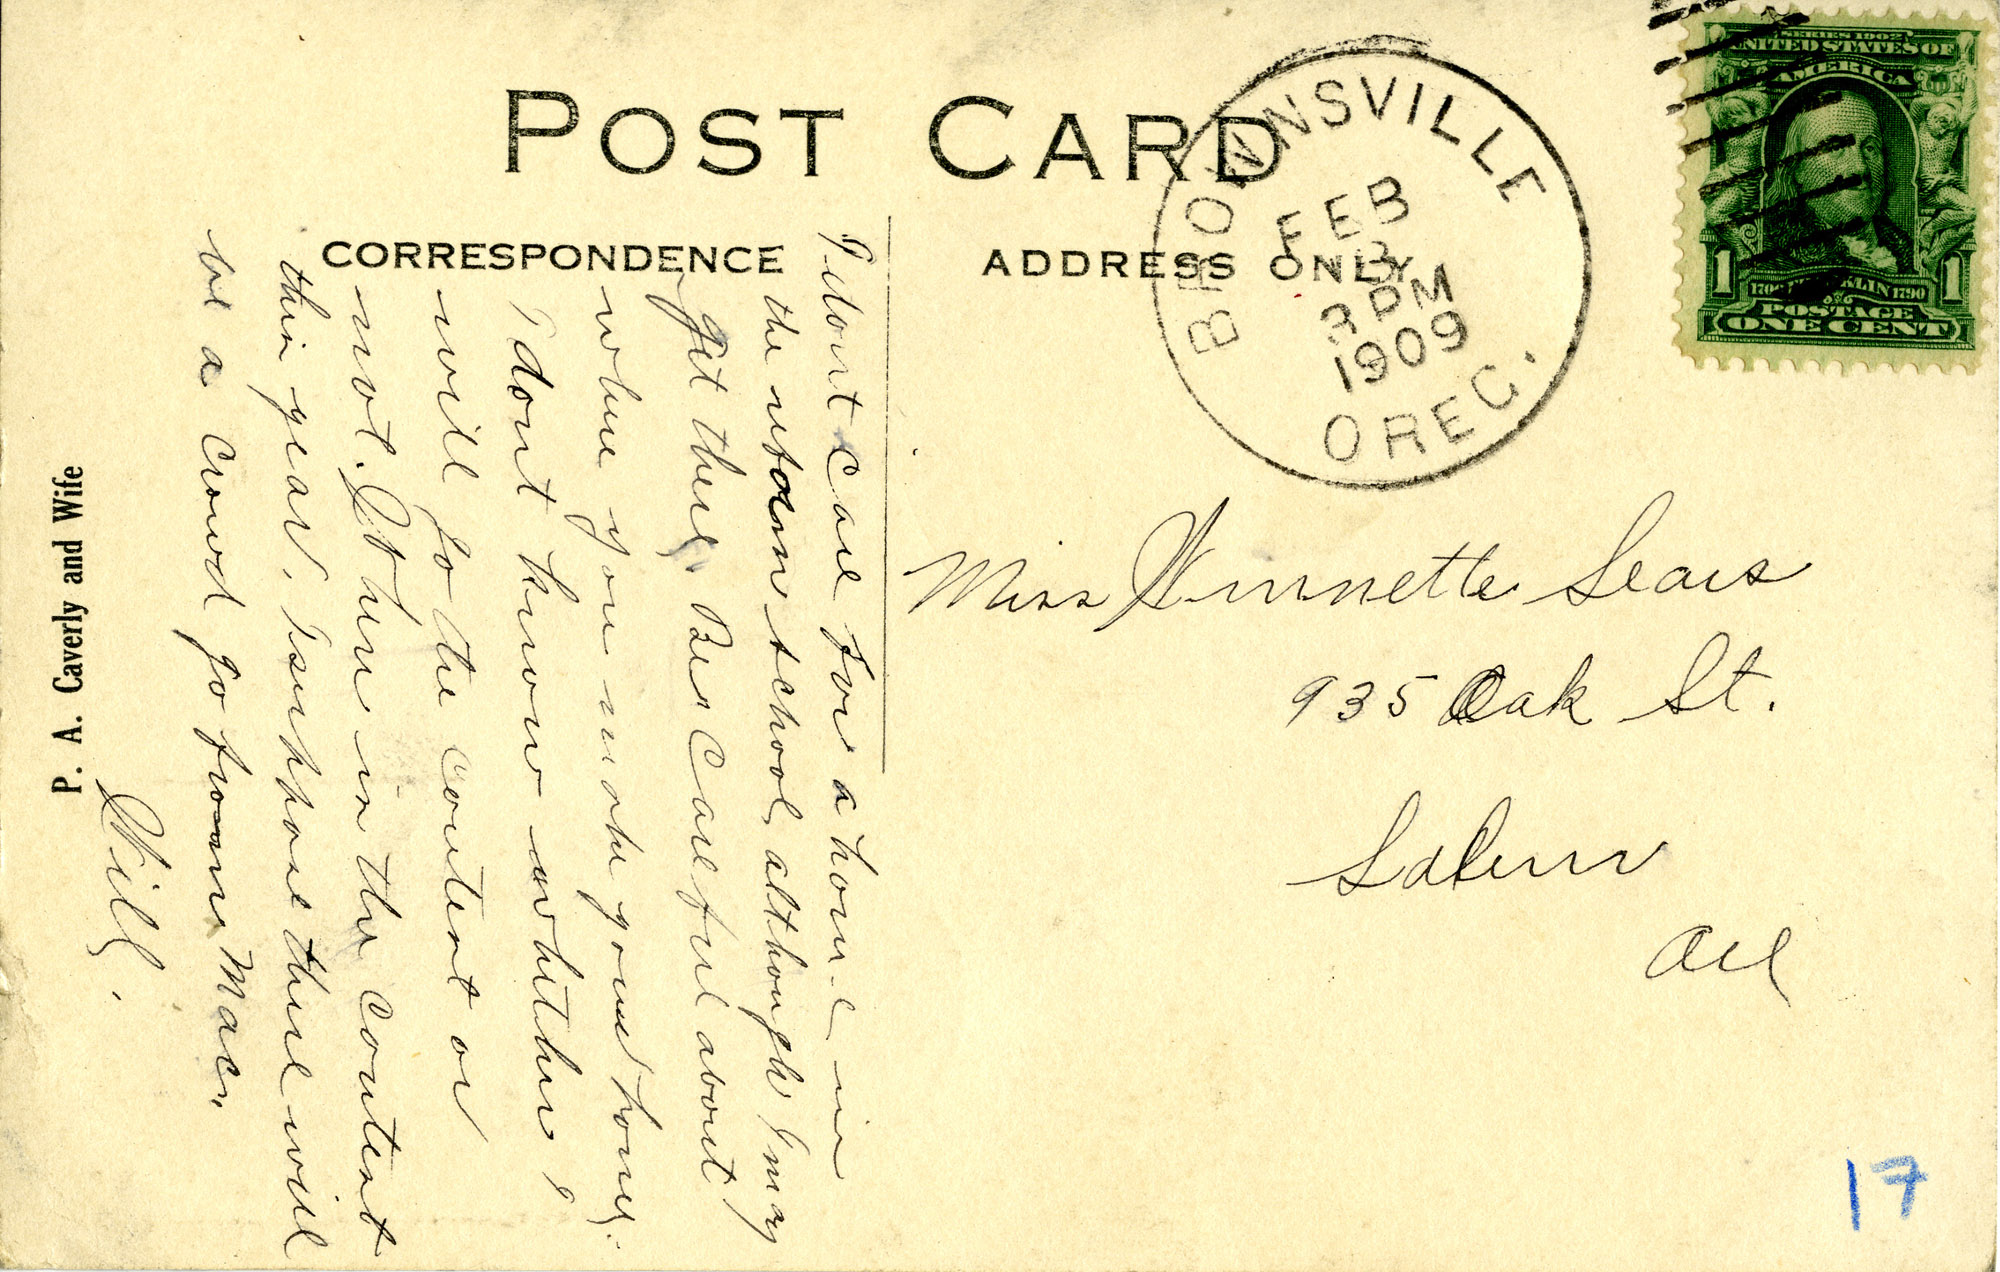 POST CARD
CORRESPONDENCE
ADDRESS ONLY
BROWNSVILLE
FEB
3
3 PM
1909
OREG.
SERIES 1902
UNITED STATES OF
AMERICA
1706 FRANKLIN 1790
1 POSTAGE 1
ONE CENT
I dont care for a home in
the reform school although I may
get there. Be careful about
where you make your home.
I dont know whether I
will go to the contest or
not. Its here in the contest
this year. I suppose there will
be a crowd go from Mac.
Will.
P. A. Caverly and Wife
Miss Winnette Sears
935 Oak St.
Salem
Ore
17